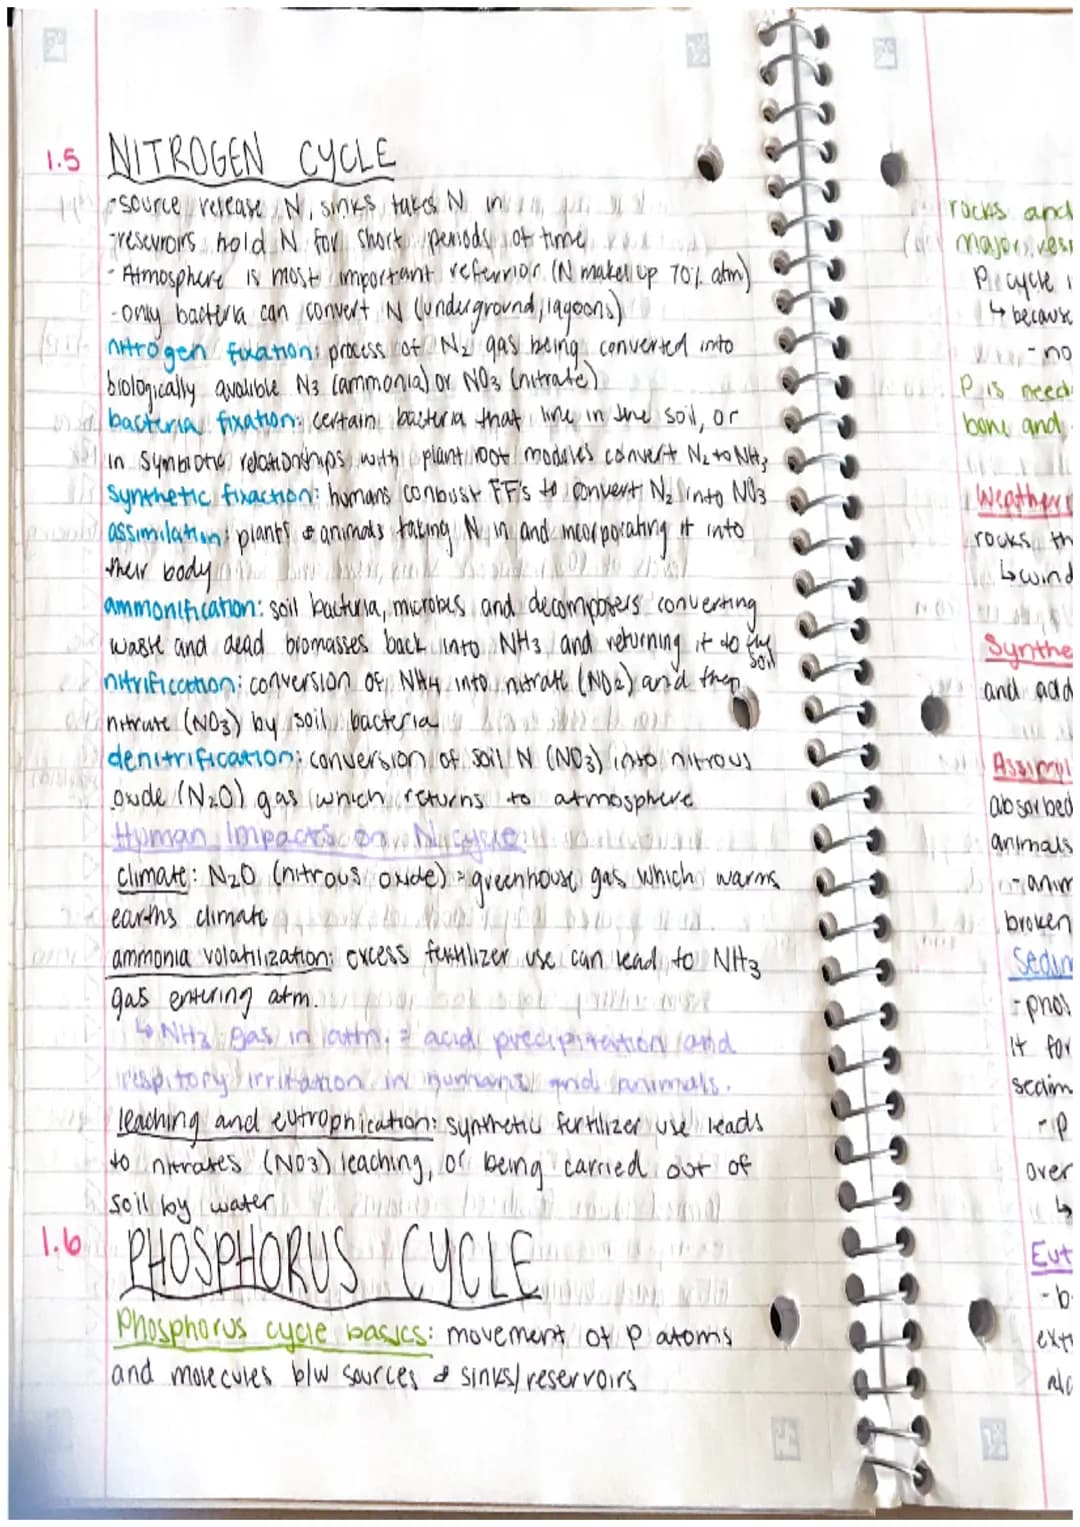 1.5 NITROGEN CYCLE
-source release N, sinks takes N in
-resevroirs hold N for short periods of time
- Atmosphere is most important referrior (N makes up 70% atm)
- only bacteria can convert N (underground, lagoons)
nitrogen fixation: process of N2 gas being converted into
biologically avalible N3 (ammonia) or NO3 (nitrate)
bacteria fixation: certain bacteria that live in the soil, or
in symbiotic relationships with plant root modules convert N2 to NH3
Synthetic fixaction: humans conbust FF's to convert N2 into NO3
assimilation: plants & animals taking N in and incorporating it into
their body
ammonification: soil bacteria, microbes and decomposers converting
waste and dead biomasses back into NH3 and returning it to the
soil
nitrification: conversion of NH4 into nitrate (NO2) and then
nitrate (NO3) by soil bacteria
denitrification: conversion of soil N (NO3) into nitrous
oxide (N2O) gas which returns to atmosphere
Human Impacts on N cycle
climate: N2O (nitrous oxide) = greenhouse gas which warms
earths climate
ammonia volatilization: excess fertilizer use can lead to NH3
gas entering atm.
↳ NH3 gas in atm. = acid precipitation and
respitory irritation in humans and animals.
leaching and eutrophication: synthetic fertilizer use leads
to nitrates (NO3) leaching, or being carried out of
soil by water
1.6 PHOSPHORUS CYCLE
Phosphorus cycle basics: movement of P atoms
and molecules b/w sources & sinks/reservoirs
rocks and
major
P cycle
↳ because
- no
P is
bone and
rocks
↳ wind
and add
absorbed
animals
broken
it for
- P
over
↳